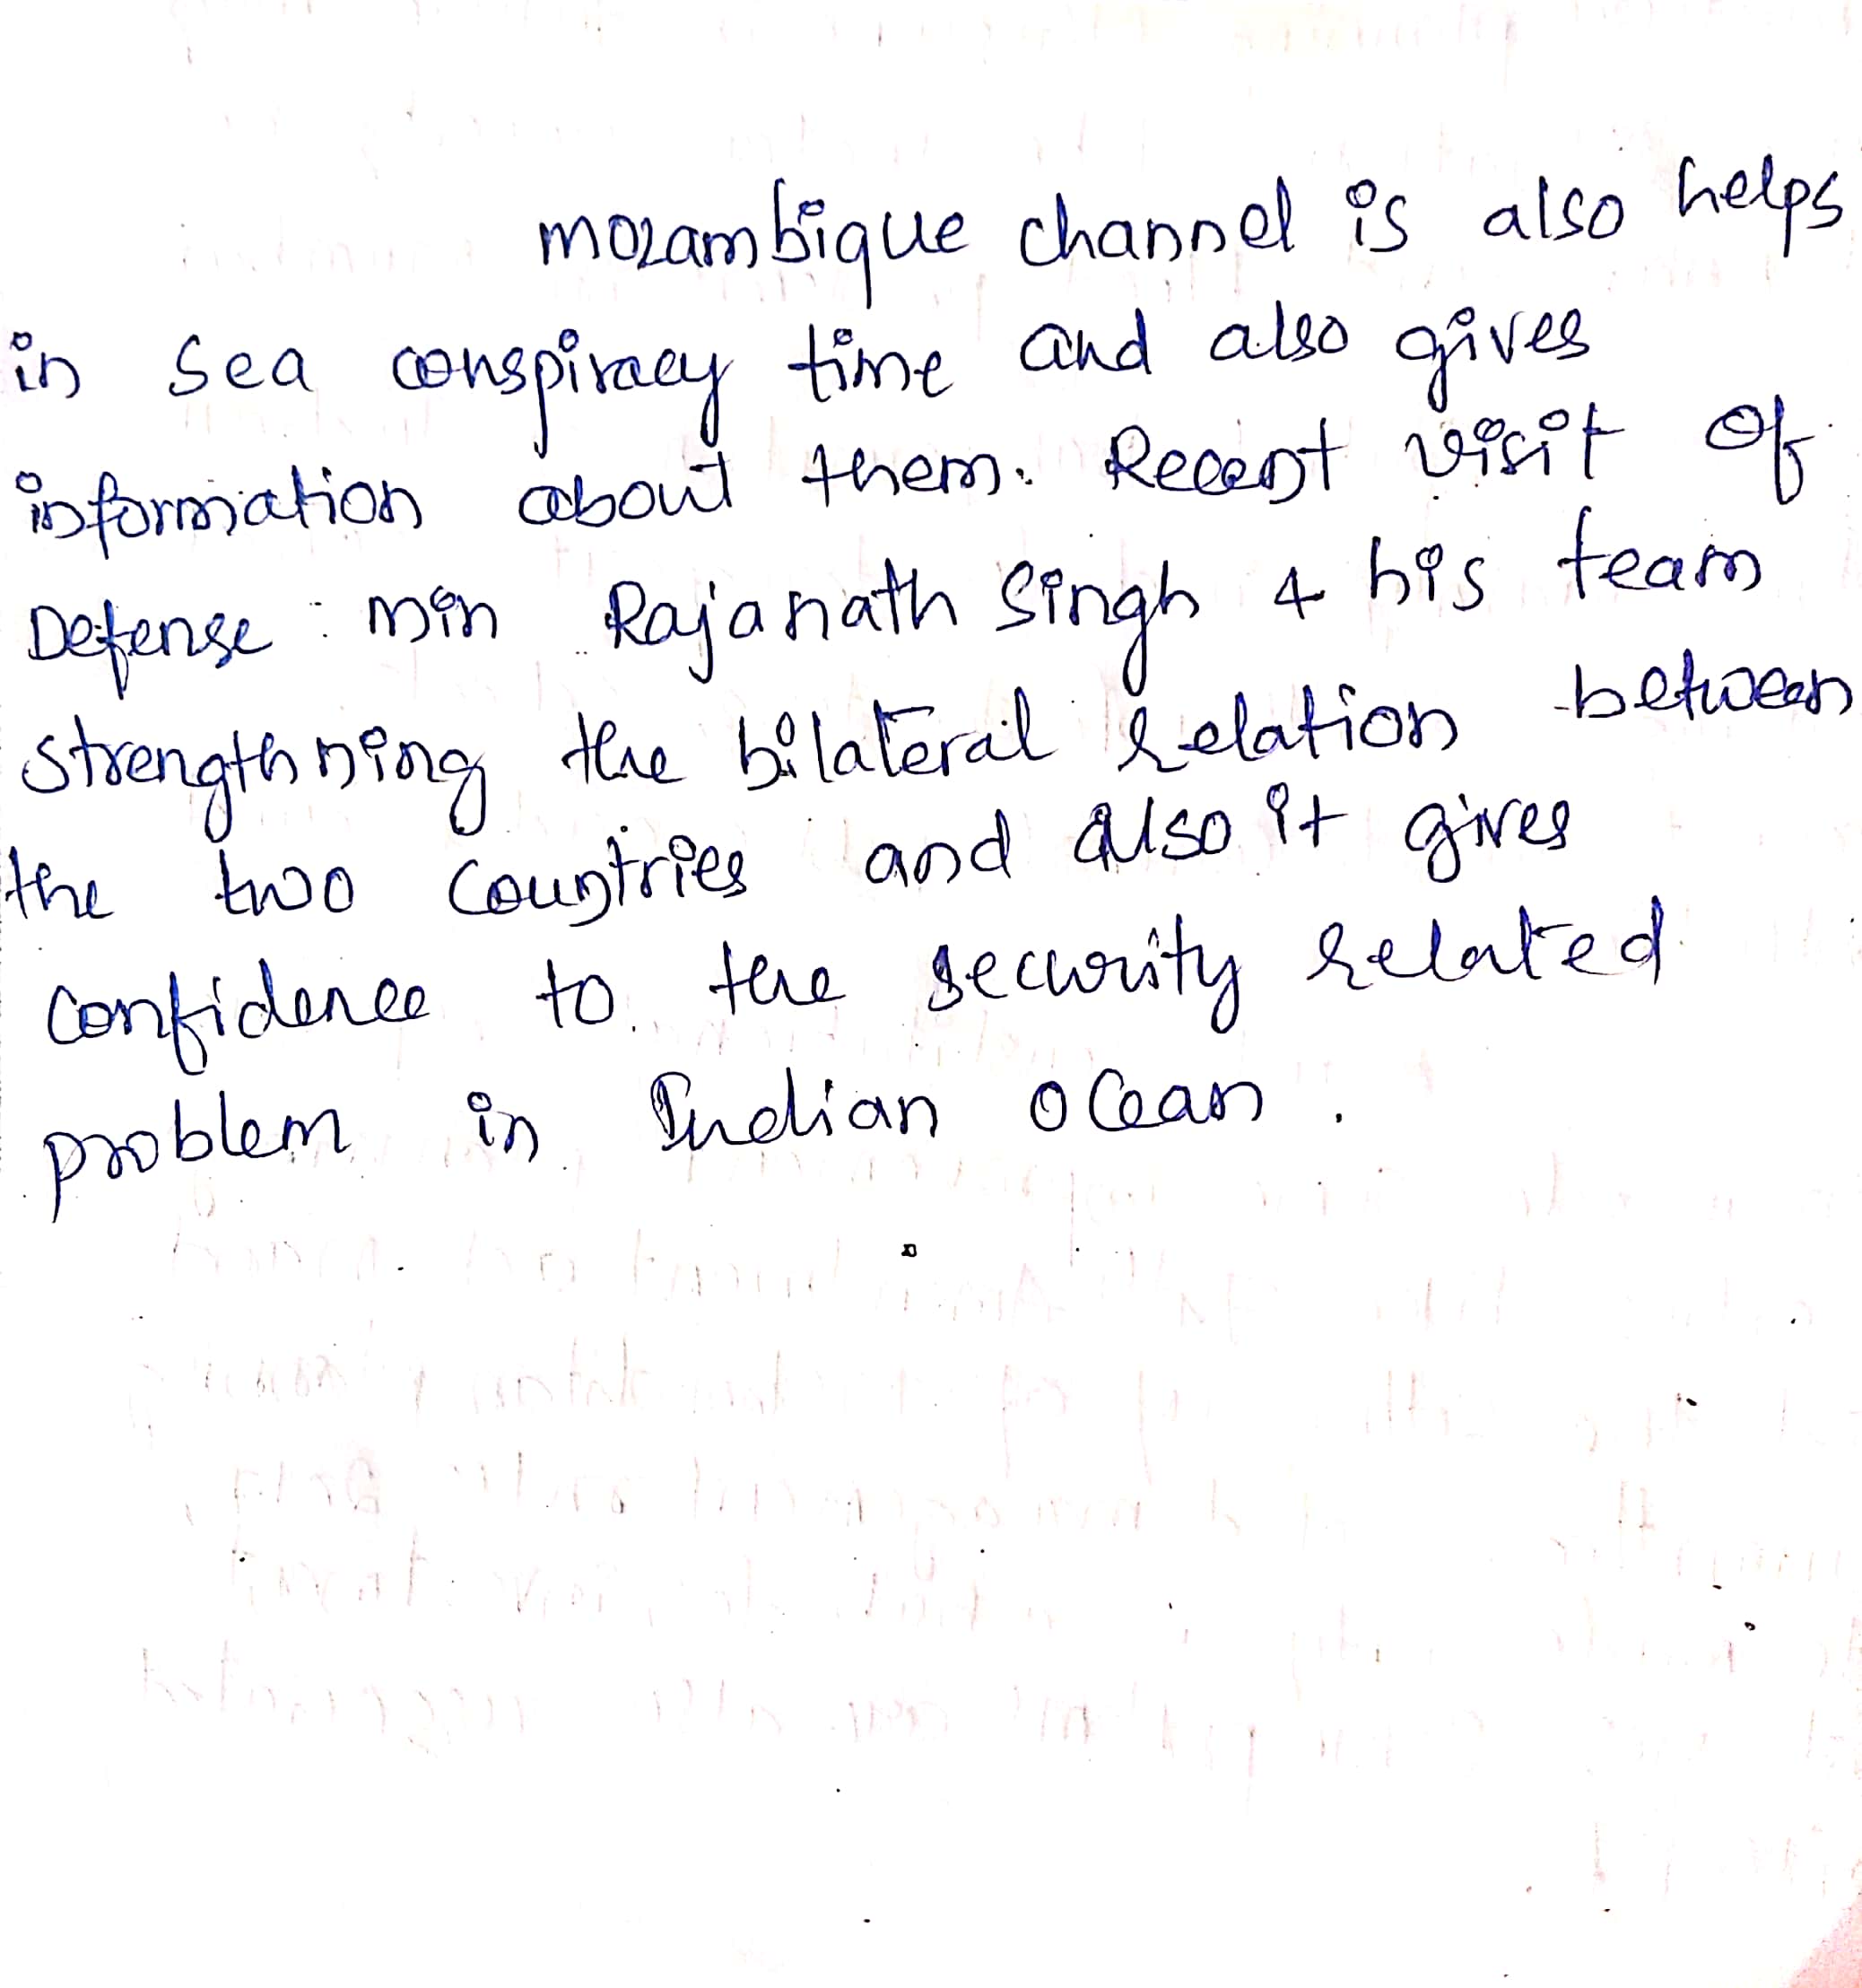 mozambique channel is also helps
in sea conspiracy time and also gives
information about them. Recent visit of
Defense min Rajanath Singh & his team
strengthning the bilateral relation between
the two countries and also it gives
confidence to the security related
problem in Indian ocean.